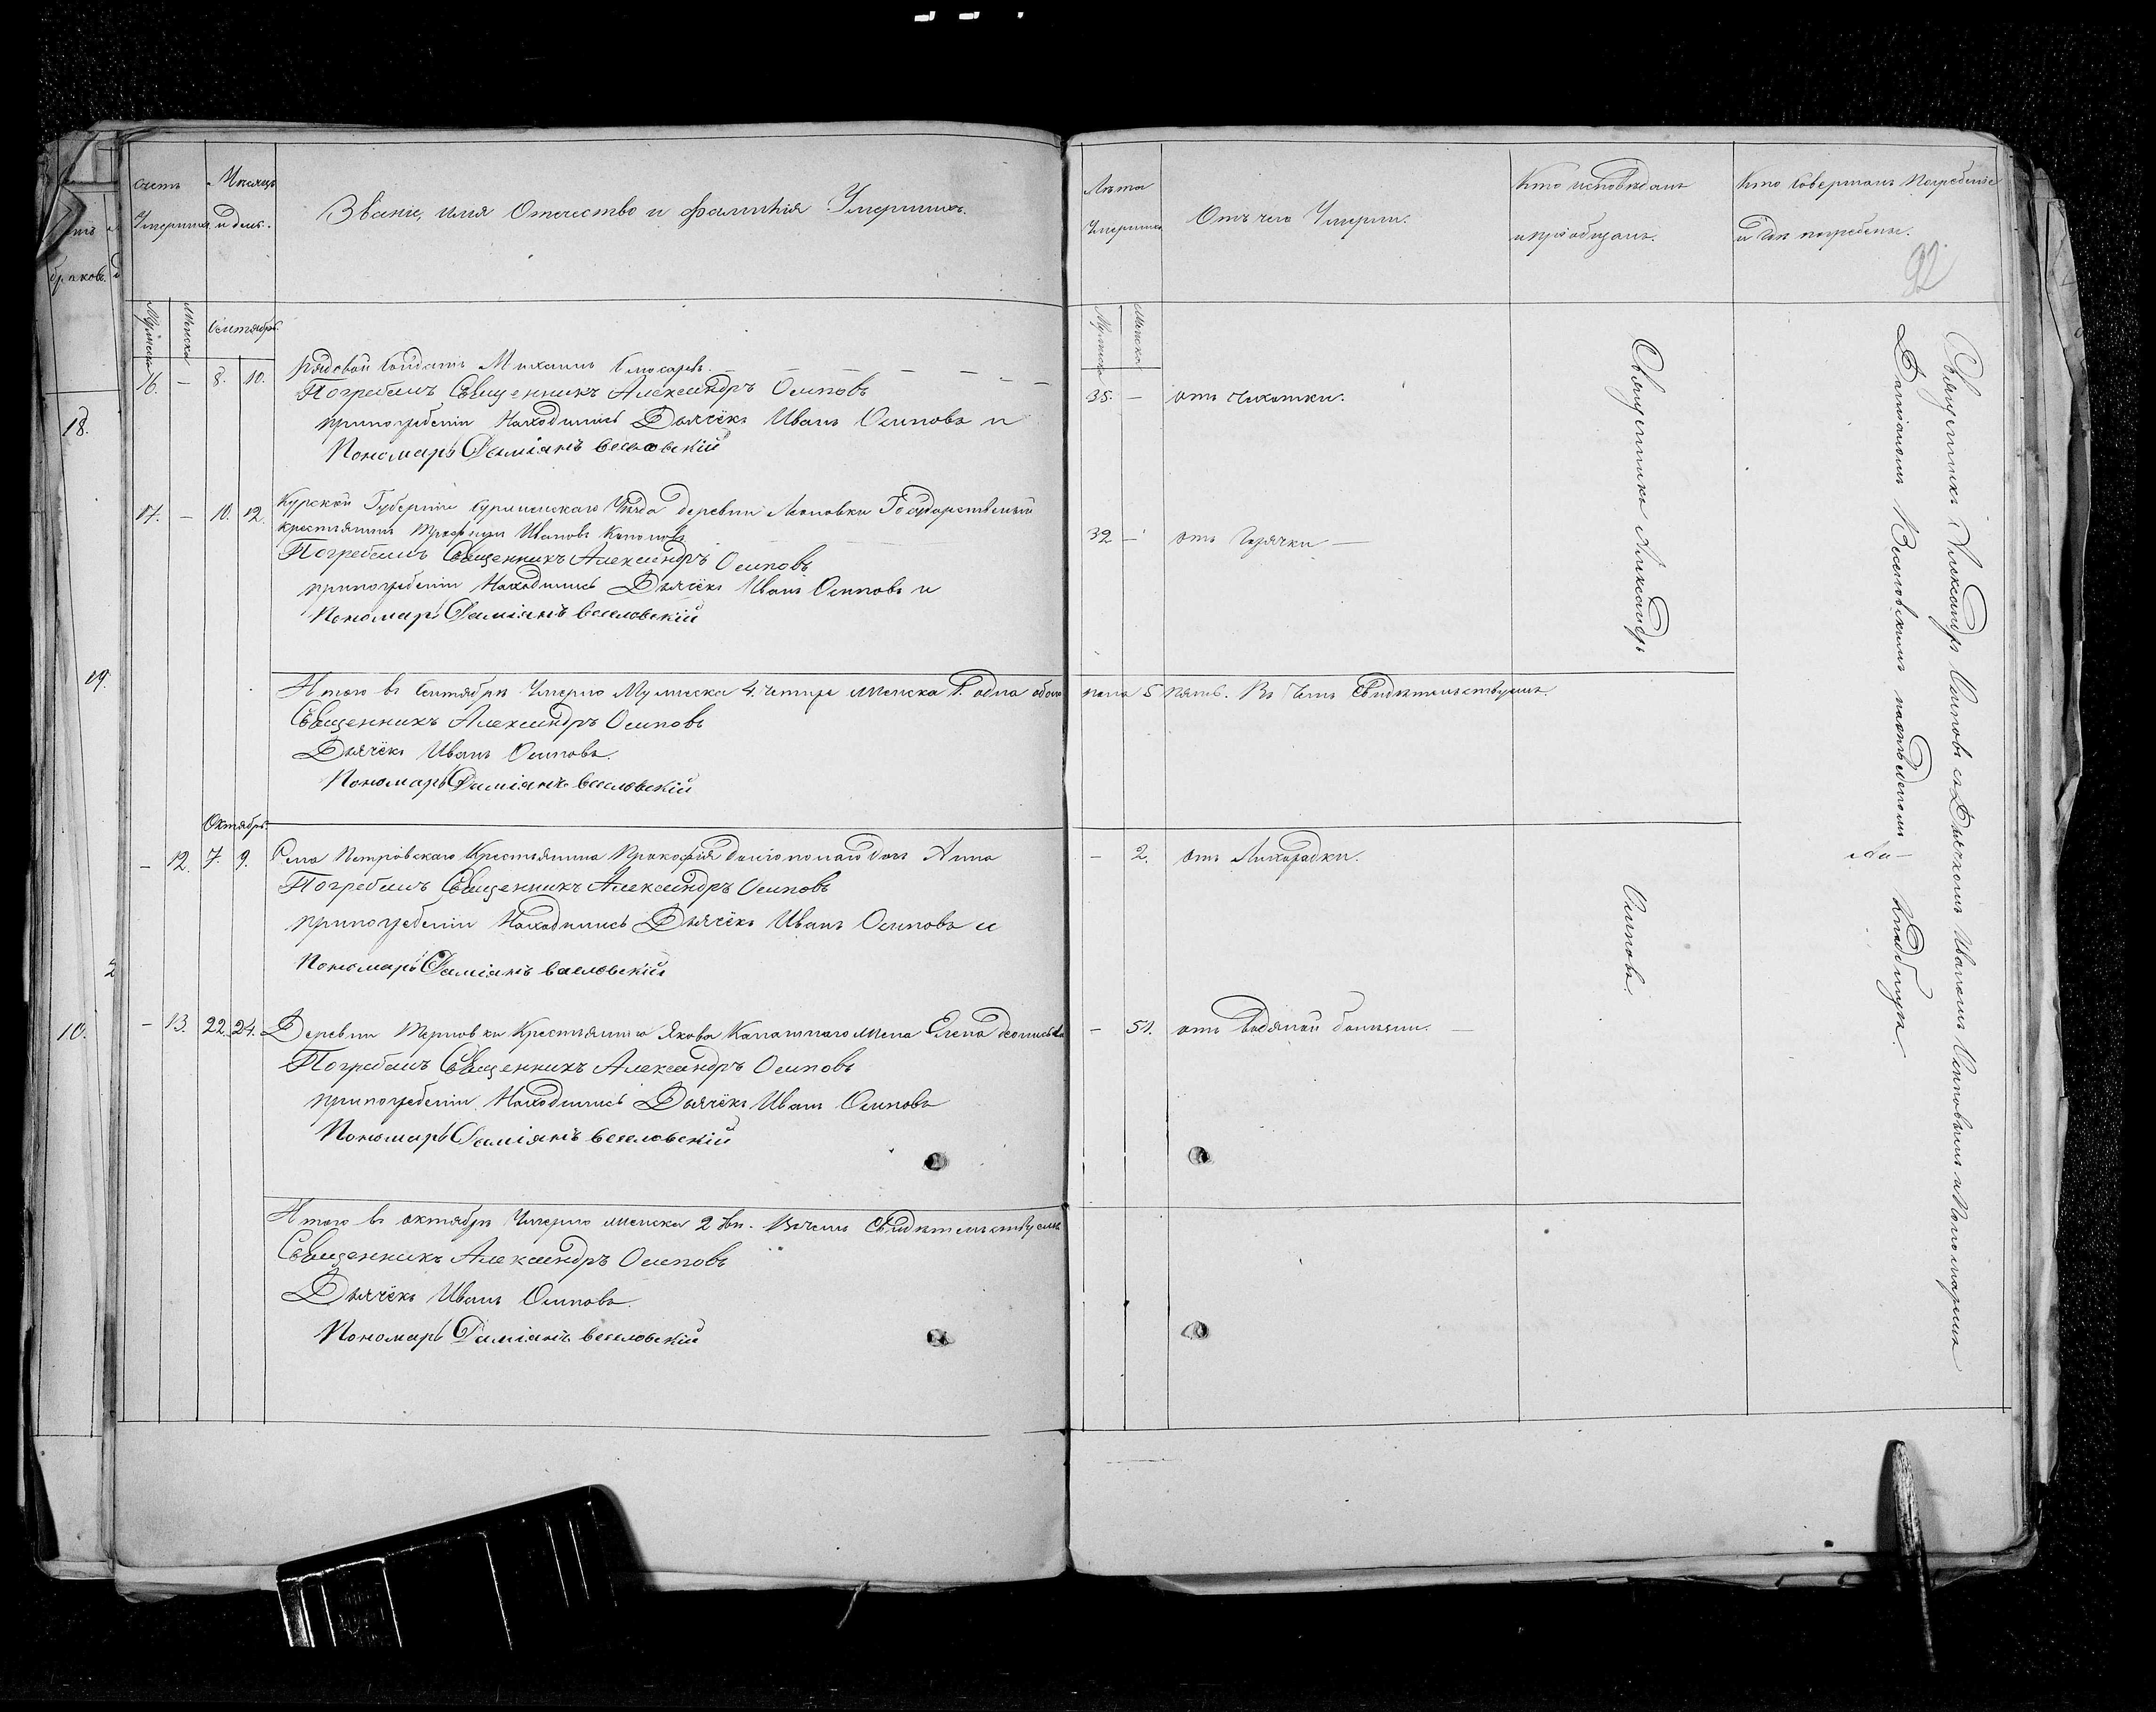 Счетъ Умершихъ
Мѣсяцъ и день.
Званіе, имя Отечество и фамилія Умершихъ.
Лѣта Умершихъ
Отъ чего Умерли.
Кто исповѣдалъ и пріобщалъ.
Кто Совершалъ Погребеніе и гдѣ погребены.
92
Мужеска
Женска
Сентябрь.
Мужеска
Женска
16. — 8. 10. Рядовой Солдатъ Михаилъ
35. — отъ Чихотки.
Погребалъ Священникъ Александръ Осиповъ
при погребеніи Находились Дьячёкъ Иванъ Осиповъ и
Пономарь Даміанъ Веселовскій
17. — 10. 12. Курской Губерніи Уѣзда деревни Государственный
крестьянинъ Трофимъ Ивановъ
32 — отъ Горячки —
Погребалъ Священникъ Александръ Осиповъ
при погребеніи Находились Дьячёкъ Иванъ Осиповъ и
Пономарь Даміанъ Веселовскій
Итого въ Сентябрѣ Умерло Мужеска 4. четыре женска 1. одна обоего пола 5 пять. Въ Чемъ Свидѣтельствуемъ.
Священникъ Александръ Осиповъ
Дьячёкъ Иванъ Осиповъ.
Пономарь Даміанъ Веселовскій
Октябрь.
— 12. 7. 9. Села Петровскаго Крестьянина Прокофія дочь Анна
— 2. отъ Лихорадки.
Погребалъ Священникъ Александръ Осиповъ
при погребеніи Находились Дьячёкъ Иванъ Осиповъ и
Пономарь Даміанъ Веселовскій
— 13. 22. 24. Деревни Терновки Крестьянина Якова жена Елена
— 51. отъ Водяной болѣзни. —
Погребалъ Священникъ Александръ Осиповъ
при погребеніи Находились Дьячёкъ Иванъ Осиповъ
Пономарь Даміанъ Веселовскій
Итого въ октябрѣ Умерло женска 2 двѣ. Въ чемъ Свидѣтельствуемъ
Священникъ Александръ Осиповъ
Дьячёкъ Иванъ Осиповъ.
Пономарь Даміанъ Веселовскій
Священникъ Александръ
Осиповъ.
Священникъ Александръ Осиповъ съ Дьячкомъ Иваномъ Осиповымъ и Пономаремъ
Даміаномъ Веселовскимъ на отведенномъ
Кладбищѣ.
18.
19.
10.
браковъ.